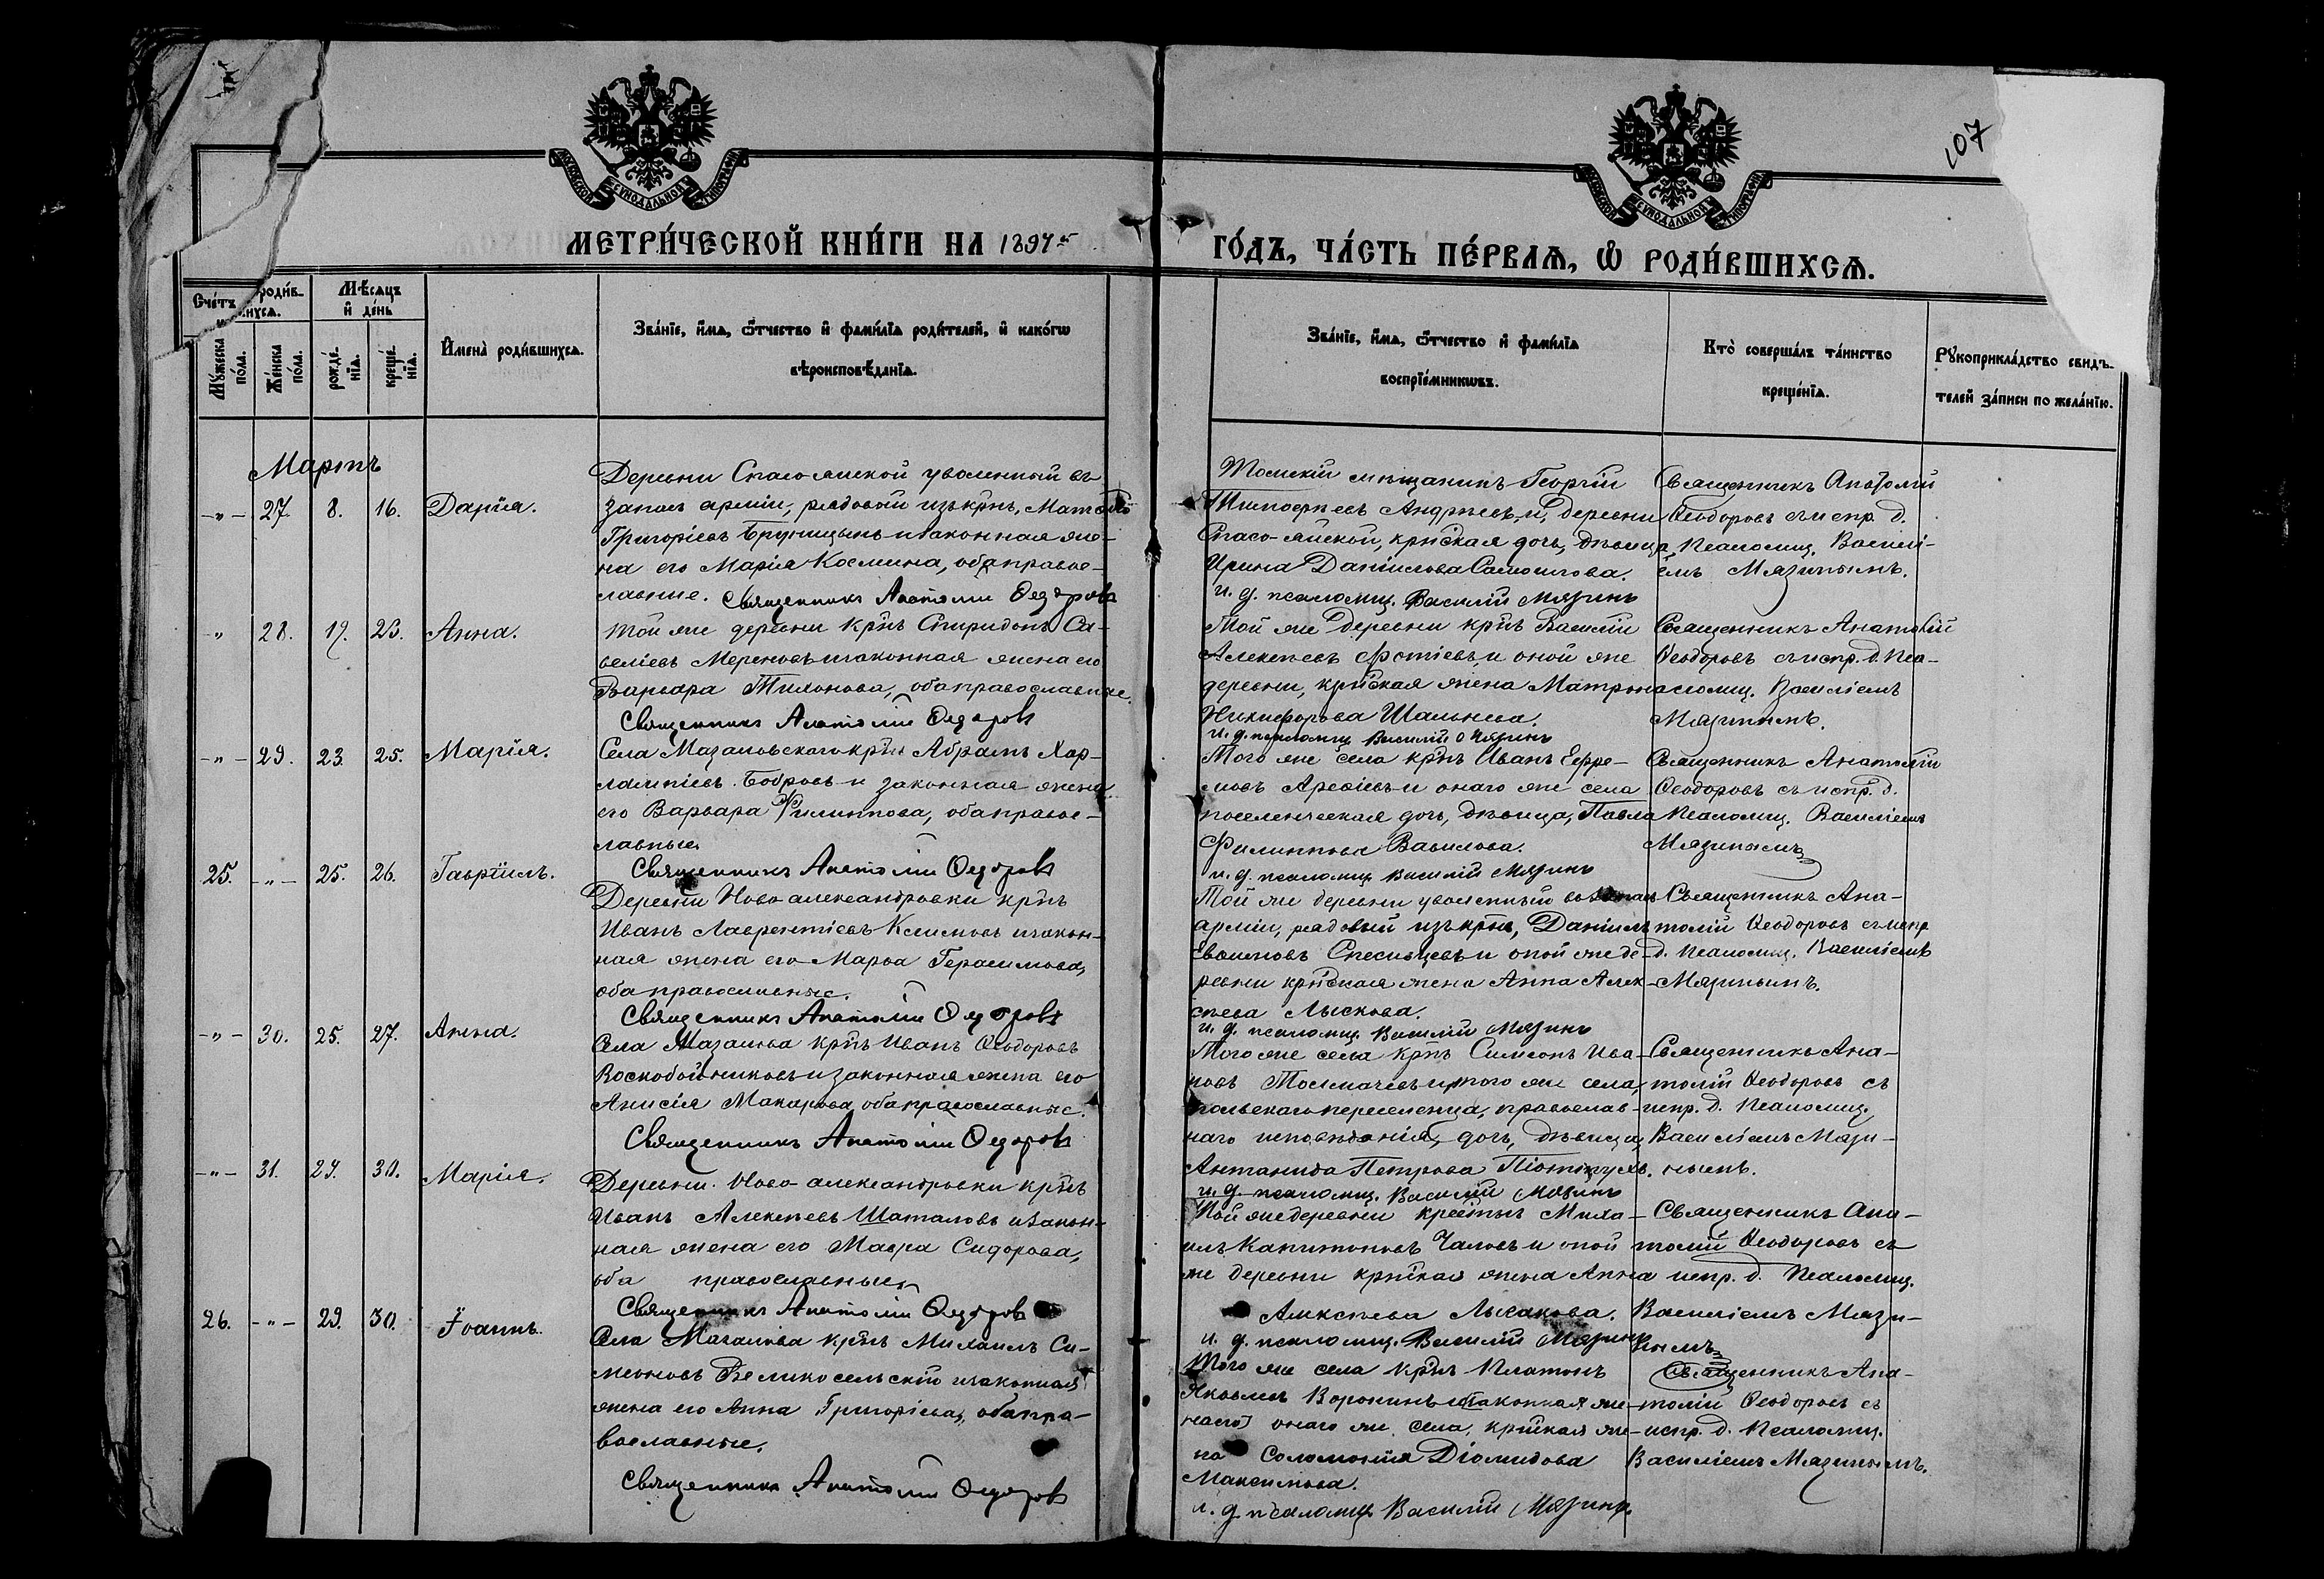 107
МОСКОВСКОЙ СѴНОДАЛЬНОЙ ТИПОГРАФІИ
МОСКОВСКОЙ СѴНОДАЛЬНОЙ ТИПОГРАФІИ
МЕТРИ́ЧЕСКОЙ КНИ́ГИ НА 1897й
ГО́ДЪ, ЧА́СТЬ ПЕ́РВАѦ, Ѡ҆ РОДИ́ВШИХСѦ.
Сче́тъ роди́в-
шихсѧ.
Мѣ́сѧцъ
и҆ де́нь
Мꙋ́жеска по́ла.
Же́нска по́ла.
рожде́нїѧ.
креще́нїѧ.
И҆мена̀ роди́вшихсѧ.
Зва́нїе, и҆́мѧ, ѻ҆́тчество и҆ фами́лїѧ роди́телей, и҆ како́гѡ
вѣроисповѣ́данїѧ.
Зва́нїе, и҆́мѧ, ѻ҆́тчество и҆ фами́лїѧ
воспрїе́мникѡвъ.
Кто̀ соверша́лъ та́инство
креще́нїѧ.
Рꙋкоприкла́дство свидѣ́-
телей за́писи по жела́нїю.
Мартъ
-„- 27. 8. 16. Дарїя.
Деревни Спасо-яйской уволенный въ
запасъ арміи, рядовой изъ крнъ, Матвѣй
Григоріевъ Брусницынъ и законная же-
на его Марія Космина, оба право-
славные. Священникъ Анатолій Ѳедоровъ
Томскій мѣщанинъ Георгій
Андреевъ, и, деревни
Спасо-яйской, крнская дочь, дѣвица
Ирина Даніилова Самойлова.
и. д. псаломщ. Василій Мязинъ
Священникъ Анатолій
Ѳеодоровъ съ испр. д.
псаломщ. Василі-
емъ Мязинымъ.
„ 28. 19. 23. Анна.
Той же деревни крнъ Спиридонъ Са-
веліевъ Мереновъ и законная жена его
Варвара Тихонова, оба православные.
Священникъ Анатолій Ѳедоровъ
Той же деревни крнъ Василій
Алексѣевъ Фотіевъ, и оной же
деревни, крнская жена Матрона
Никифорова
и. д. псаломщ Василій Мязинъ
Священникъ Анатолій
Ѳеодоровъ съ испр. д. пса-
ломщ. Василіемъ
Мязинымъ.
-„- 29. 23. 25. Марїя.
Села Мазаловскаго крнъ Абрамъ Хар-
лампіевъ Бобровъ и законная жена
его Варвара Филиппова, оба право-
славные.
Священникъ Анатолій Ѳедоровъ
Того же села крнъ Иванъ Ефре-
мовъ Арефіевъ и онаго же села
поселенческая дочь, дѣвица, Павла
Филиппова Вавилова.
и. д. псаломщ Василій Мязинъ
Священникъ Анатолій
Ѳеодоровъ съ испр. д.
псаломщ. Василіемъ
Мязинымъ
25. -„- 25. 26. Гавріилъ.
Деревни Ново александровки крнъ
Иванъ Лаврентіевъ Климовъ и закон-
ная жена его Марѳа Герасимова,
оба православные.
Священникъ Анатолій Ѳедоровъ
Той же деревни уволенный въ запасъ
арміи, рядовый изъ крнъ, Даніилъ
и оной же де-
ревни крнская жена Анна Алек-
сѣева Лыскова.
и. д. псаломщ. Василій Мязинъ
Священникъ Ана-
толій Ѳеодоровъ съ испр
д. псаломщ. Василіемъ
Мязинымъ.
-„- 30. 25. 27. Анна.
Села Мазалова крнъ Иванъ Ѳеодоровъ
Воскобойниковъ и законная жена его
Анисія Макарова оба православные.
Священникъ Анатолій Ѳедоровъ
Того же села крнъ Симеонъ Ива-
новъ Толмачевъ и того же села,
польскаго переселенца, православ-
наго исповѣданія, дочь, дѣвица,
Антанида Петрова
и. д. псаломщ. Василій Мязинъ
Священникъ Ана-
толій Ѳеодоровъ съ
испр. д. псаломщ.
Василіемъ Мази-
нымъ.
-„- 31. 27. 30. Марія.
Деревни Ново-александровки крнъ
Иванъ Алексѣевъ Шаталовъ и закон-
ная жена его Мавра Сидорова,
оба православные
Священникъ Анатолій Ѳедоровъ
Той же деревни крестьн Миха-
илъ Капитоновъ Чаловъ и оной
же деревни крнская жена Анна
Алексѣева Лыскова.
и. д. псаломщ. Василій Мязинъ
Священникъ Ана-
толій Ѳеодоровъ съ
испр. д. псаломщ.
Василіемъ Мязи-
нымъ
26. -„- 29. 30. Іоаннъ.
Села Мазалова крнъ Михаилъ Си-
меоновъ Великосельскій и законная
жена его Анна Григорьева, оба пра-
вославные.
Священникъ Анатолій Ѳедоровъ
Того же села крнъ Платонъ
Яковлевъ Воронинъ и законная же-
на его онаго же села, крнская же-
на Соломонія Діомидова
Максимова.
и. д псаломщ Василій Мязинъ.
Священникъ Ана-
толій Ѳеодоровъ съ
испр. д. псаломщ.
Василіемъ Мязинымъ.